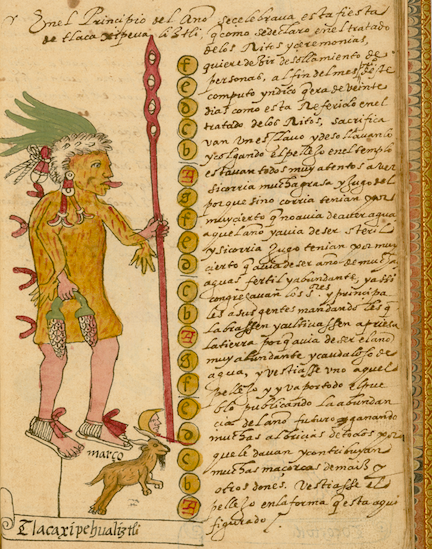 En el Principio del Año se celebrava esta fiesta
de tlaca xipeva liztli. q como se declaro en el tratado
de los Ritos y ceremonias,
quiere dezir desollamiento de
personas, a fin del mes deste
computo yndico q era de veinte
dias como esta Referido en el
tratado de los Ritos, sacrifica
van Un esclauo y desollauanlo
y colgando el pellejo en el templo
estauan todos muy atentos a ver
si corria mucha grasa y Jugo del
porque sino corria tenian por
muy cierto q no auia de auer agua
aquel año y auia de ser steril
y si corria Jugo tenian por muy
cierto q auia de ser año de mucha
aguas fertil y abundante, y assi
congregauan los y principa
les a sus gentes mandandoles q
labrassen y cultiuassen apriesa
la tierra porq auia de ser el año
muy abundante y caudaloso de
agua, y vestiasse uno aquel
pellejo y yva por todo el pue
blo publicando la abundan
cia del año futuro y ganando
muchas albricias de todos por
que le dauan y contribuyan
muchas maçorcas de mais y
otros dones. Vestiasse el
pellejo en la forma q esta aqui
figurado
f
e
d
c
b
A
g
f
e
d
c
b
A
g
f
e
d
c
b
A
março
Tlacaxipehualiztli